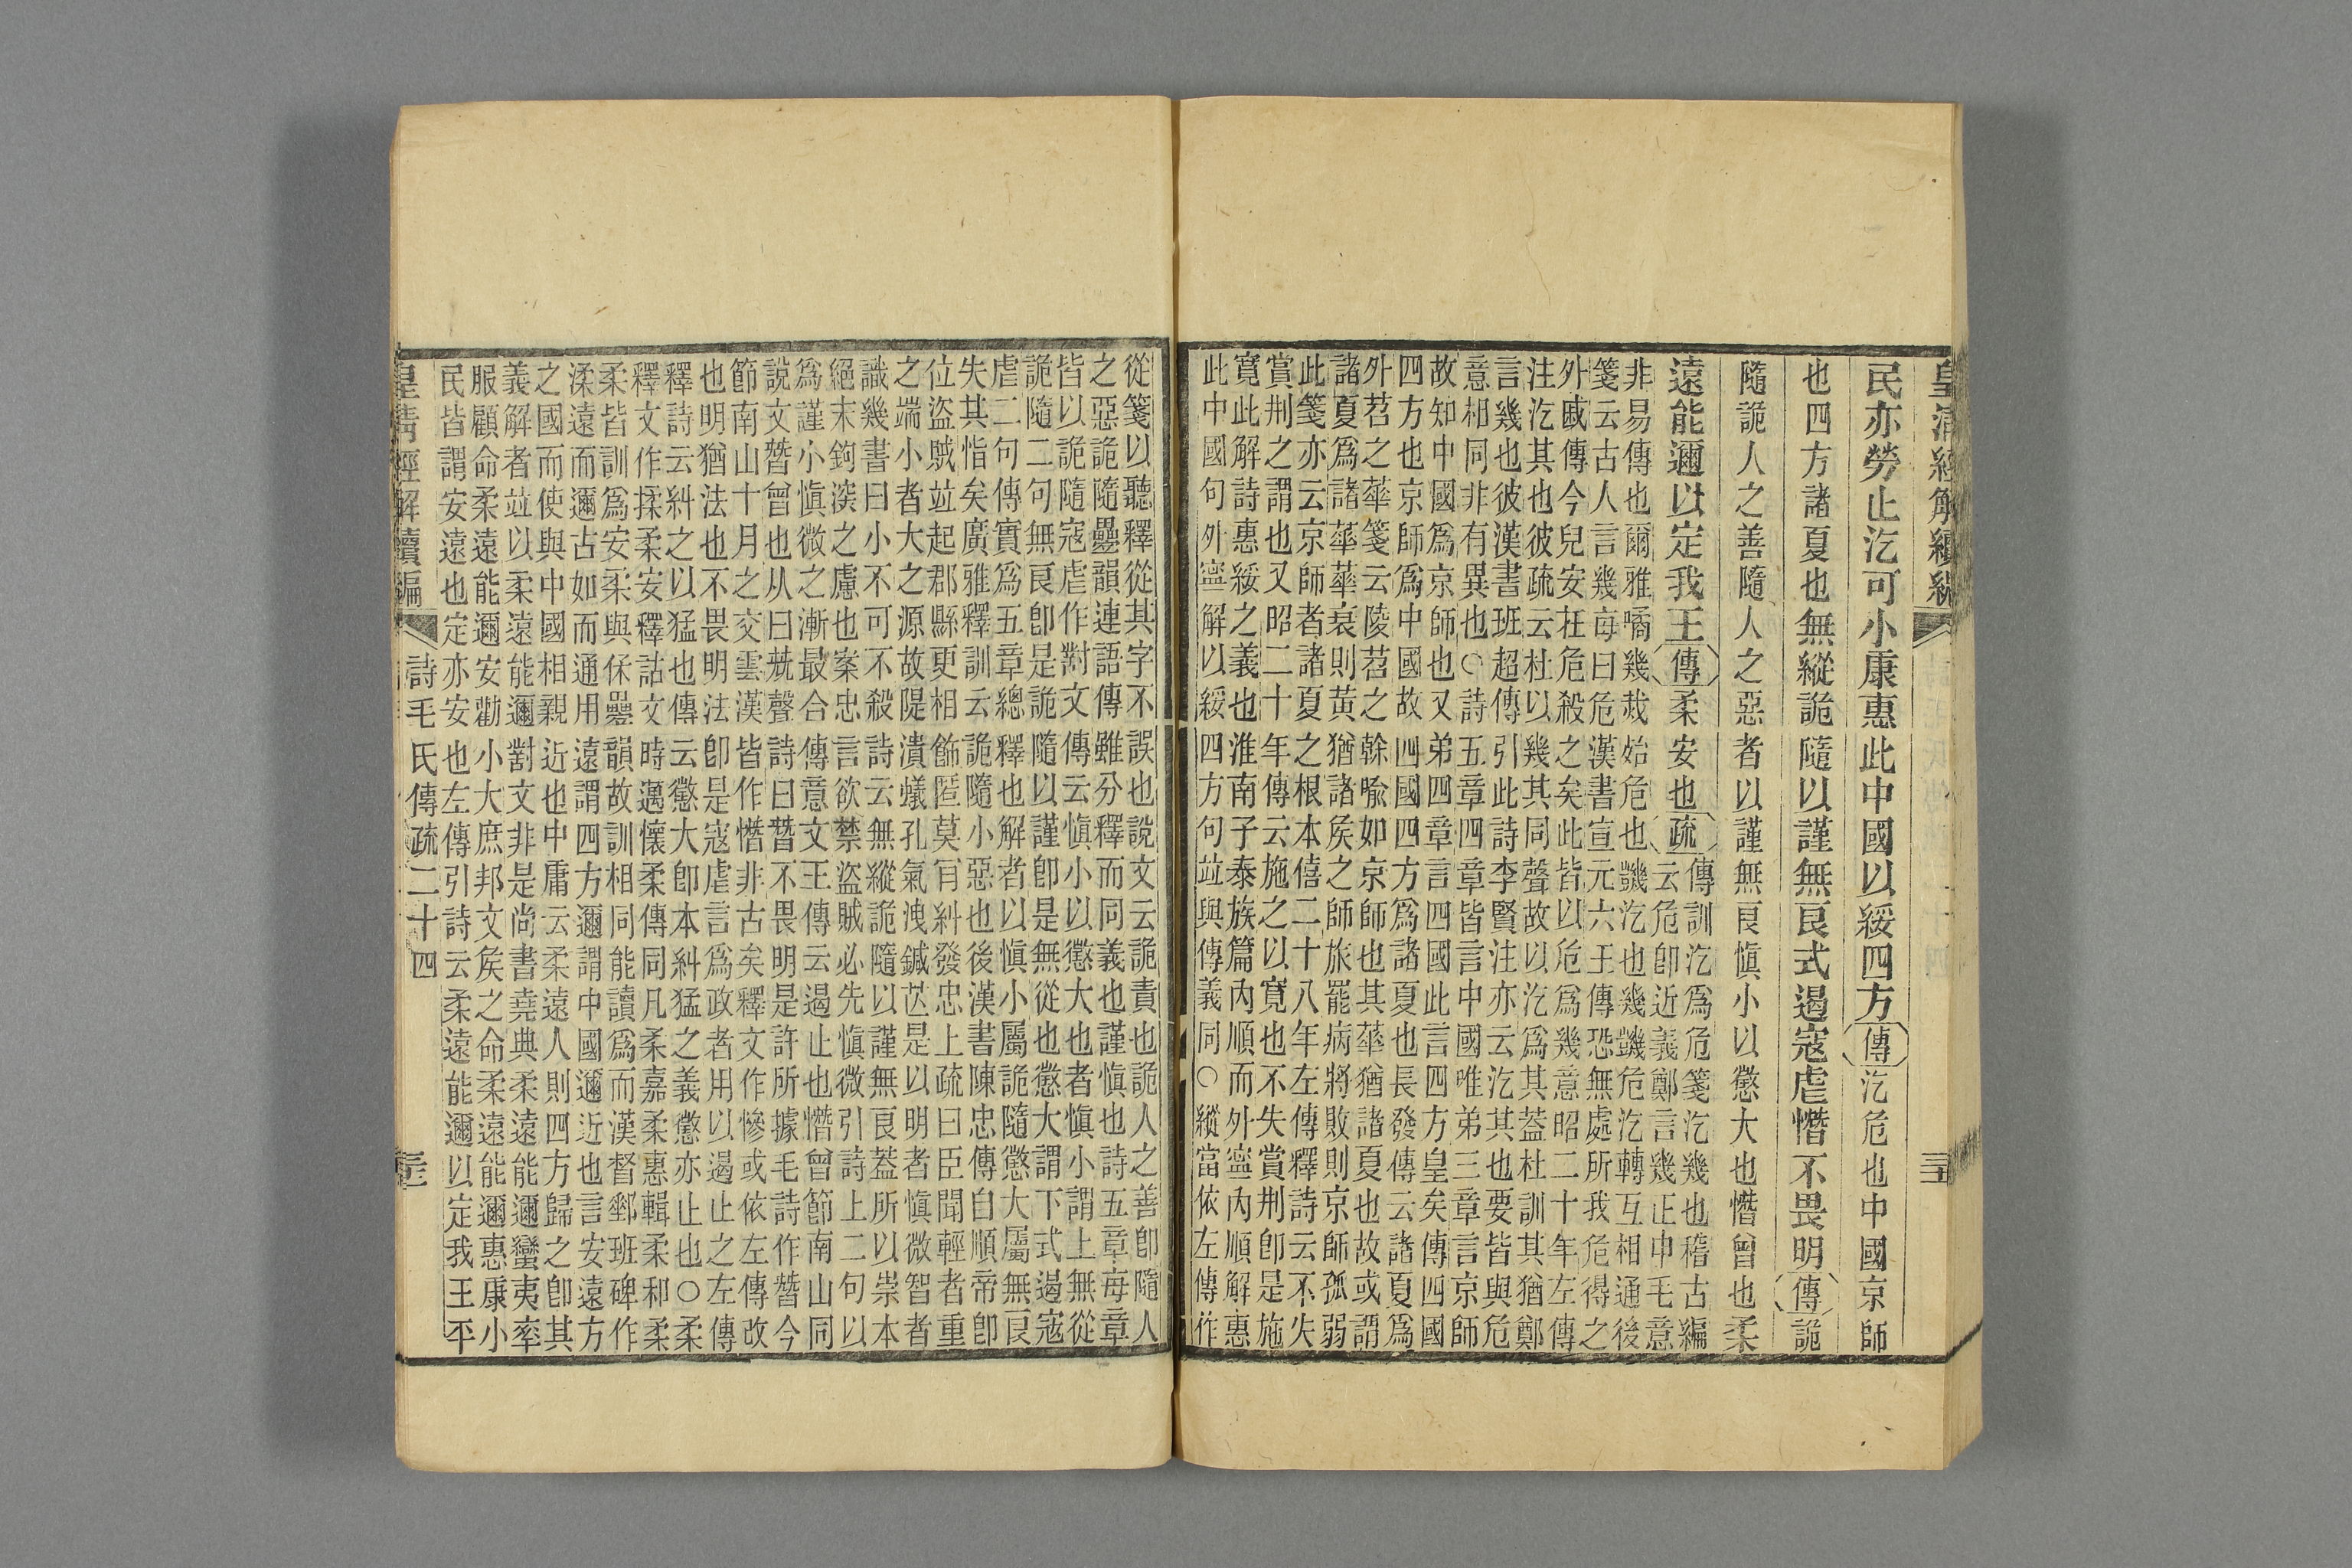 皇清經解續編
民亦勞止汔可小康惠此中國以綏四方傳汔危也中國京師
也四方諸夏也無縱詭隨以謹無良式遏寇虐憯不畏明傳詭
隨詭人之善隨人之惡者以謹無良愼小以懲大也憯曾也柔
遠能邇以定我王傳柔安也疏傳訓汔爲危箋汔幾也稽古編
云危卽近義鄭言幾正申毛意
非易傳也爾雅噊幾烖殆危也譏汔也幾譏危汔轉互相通後
箋云古人言幾每曰危漢書宣元六王傳恐無處所我危得之
外戚傳今兒安在危殺之矣此皆以危爲幾意昭二十年左傳
注汔其也彼疏云杜以幾其同聲故以汔爲其蓋杜訓其猶鄭
言幾也彼漢書班超傳引此詩李賢注亦云汔其也要皆與危
意相同非有異也○詩五章四章皆言中國唯弟三章言京師
故知中國爲京師也又弟四章言四國此言四方皇矣傳四國
四方也京師爲中國故四國四方爲諸夏也長發傳云諸夏爲
外苕之華箋云陵苕之榦喩如京師也其華猶諸夏也故或謂
諸夏爲諸華華衰則黃猶諸矦之師旅罷病將敗則京師孤弱
此箋亦云京師者諸夏之根本僖二十八年左傳釋詩云不失
賞荆之謂也又昭二十年傳云施之以寬也不失賞荆卽是施
寬此解詩惠綏之義也淮南子泰族篇內順而外寧內順解惠
此中國句外寧解以綏四方句竝與傳義同○縱當依左傳作
從箋以聽釋從其字不誤也說文云詭責也詭人之善卽隨人
之惡詭隨疊韻連語傳雖分釋而同義也謹愼也詩五章每章
皆以詭隨寇虐作對文傳云愼小以懲大也者愼小謂上無從
詭隨二句無良卽是詭隨以謹卽是無從也懲大謂下式遏寇
虐二句傳實爲五章總釋也解者以愼小屬詭隨懲大屬無良
失其恉矣廣雅釋訓云詭隨小惡也後漢書陳忠傳白順帝卽
位盜賊竝起郡縣更相飾匿莫肯糾發忠上疏曰臣聞輕者重
之端小者大之源故隄潰蟻孔氣洩鍼芒是以明者愼微智者
識幾書曰小不可不殺詩云無縱詭隨以謹無良蓋所以崇本
絕末鉤深之慮也案忠言欲禁盜賊必先愼微引詩上二句以
爲謹小愼微之漸最合傳意文王傳云遏止也憯曾節南山同
說文朁曾也从曰兓聲詩曰朁不畏明是許所據毛詩作朁今
節南山十月之交雲漢皆作憯非古矣釋文作慘或依左傳改
也明猶法也不畏明法卽是寇虐言爲政者用以遏止之左傳
釋詩云糾之以猛也傳云懲大卽本糾猛之義懲亦止也○柔
釋文作揉柔安釋詁文時邁懷柔傳同凡柔嘉柔惠輯柔和柔
柔皆訓爲安柔與㑱疊韻故訓相同能讀爲而漢督郵班碑作
渘遠而邇古如而通用遠謂四方邇謂中國邇近也言安遠方
之國而使與中國相親近也中庸云柔遠人則四方歸之卽其
義解者竝以柔遠能邇對文非是尚書堯典柔遠能邇蠻夷率
服顧命柔遠能邇安勸小大庶邦文矦之命柔遠能邇惠康小
民皆謂安遠也定亦安也左傳引詩云柔遠能邇以定我王平
皇清經解續編 詩毛氏傳疏二十四